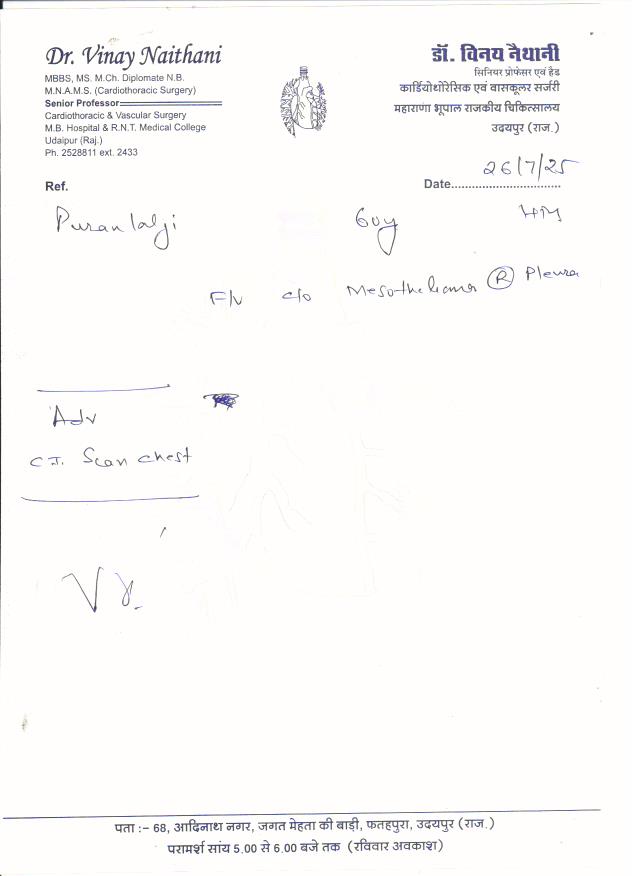 Dr. Vinay Naithani
MBBS, MS. M.Ch. Diplomate N.B.
M.N.A.M.S. (Cardiothoracic Surgery)
Senior Professor
Cardiothoracic & Vascular Surgery
M.B. Hospital & R.N.T. Medical College
Udaipur (Raj.)
Ph. 2528811 ext. 2433
डॉ. विनय नैथानी
सिनियर प्रोफेसर एवं हैड
कार्डियोथोरेसिक एवं वासकूलर सर्जरी
महाराणा भूपाल राजकीय चिकित्सालय
उदयपुर (राज.)
Ref.
Date.............................. 26/7/25
Puranlalji 60y
F/U c/o Mesothelioma R Pleura
Adv
C.T. Scan chest
पता :– 68, आदिनाथ नगर, जगत मेहता की बाड़ी, फतहपुरा, उदयपुर (राज.)
परामर्श सांय 5.00 से 6.00 बजे तक (रविवार अवकाश)